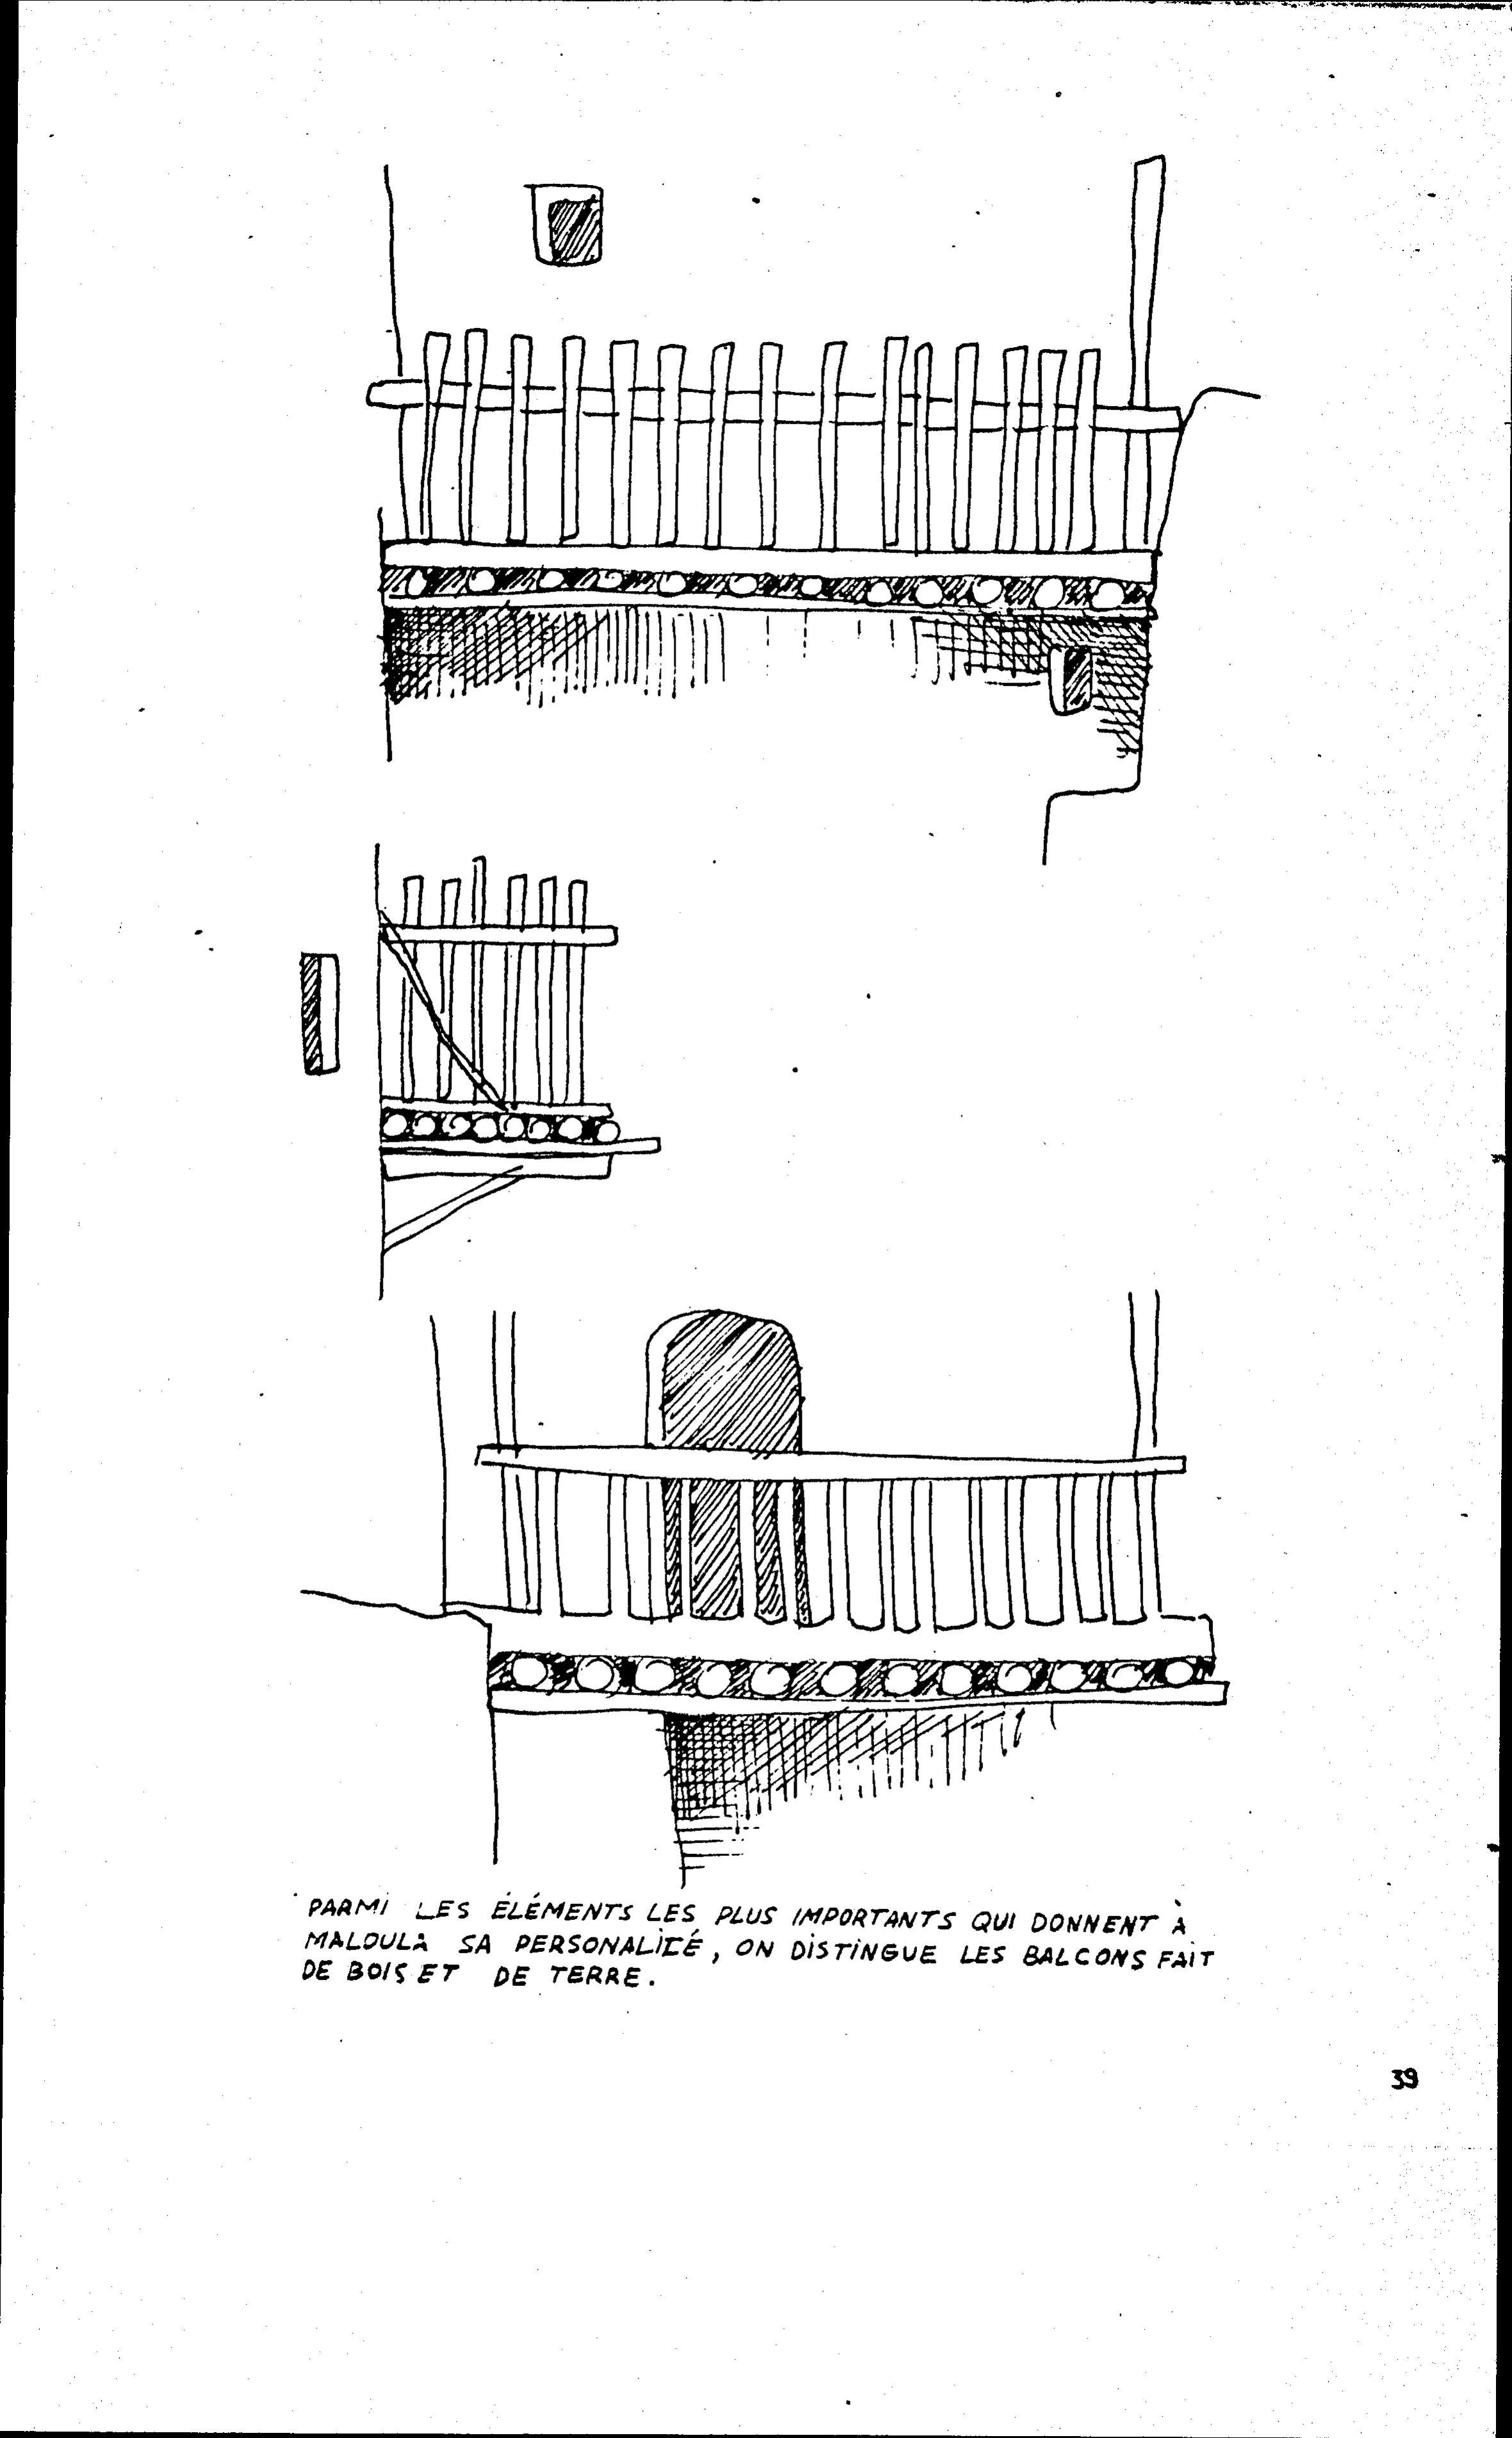 PARMI LES ÉLÉMENTS LES PLUS IMPORTANTS QUI DONNENT À
MALOULA SA PERSONALITÉ, ON DISTINGUE LES BALCONS FAIT
DE BOIS ET DE TERRE.
39